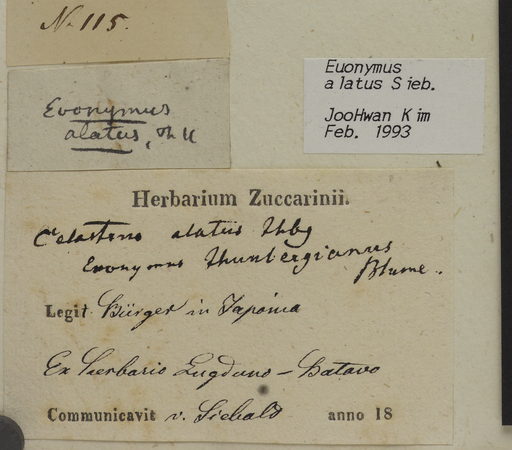 N. 115.
Evonymus
alatus, Th
Euonymus
alatus Sieb.
JooHwan Kim
Feb. 1993
Herbarium Zuccarinii.
Celastrus alatus Thbg
Evonymus Thunbergianus
Blume.
Legit Bürger in Japonia
Ex Herbario Lugduno-Batavo
Communicavit v. Siebold anno 18